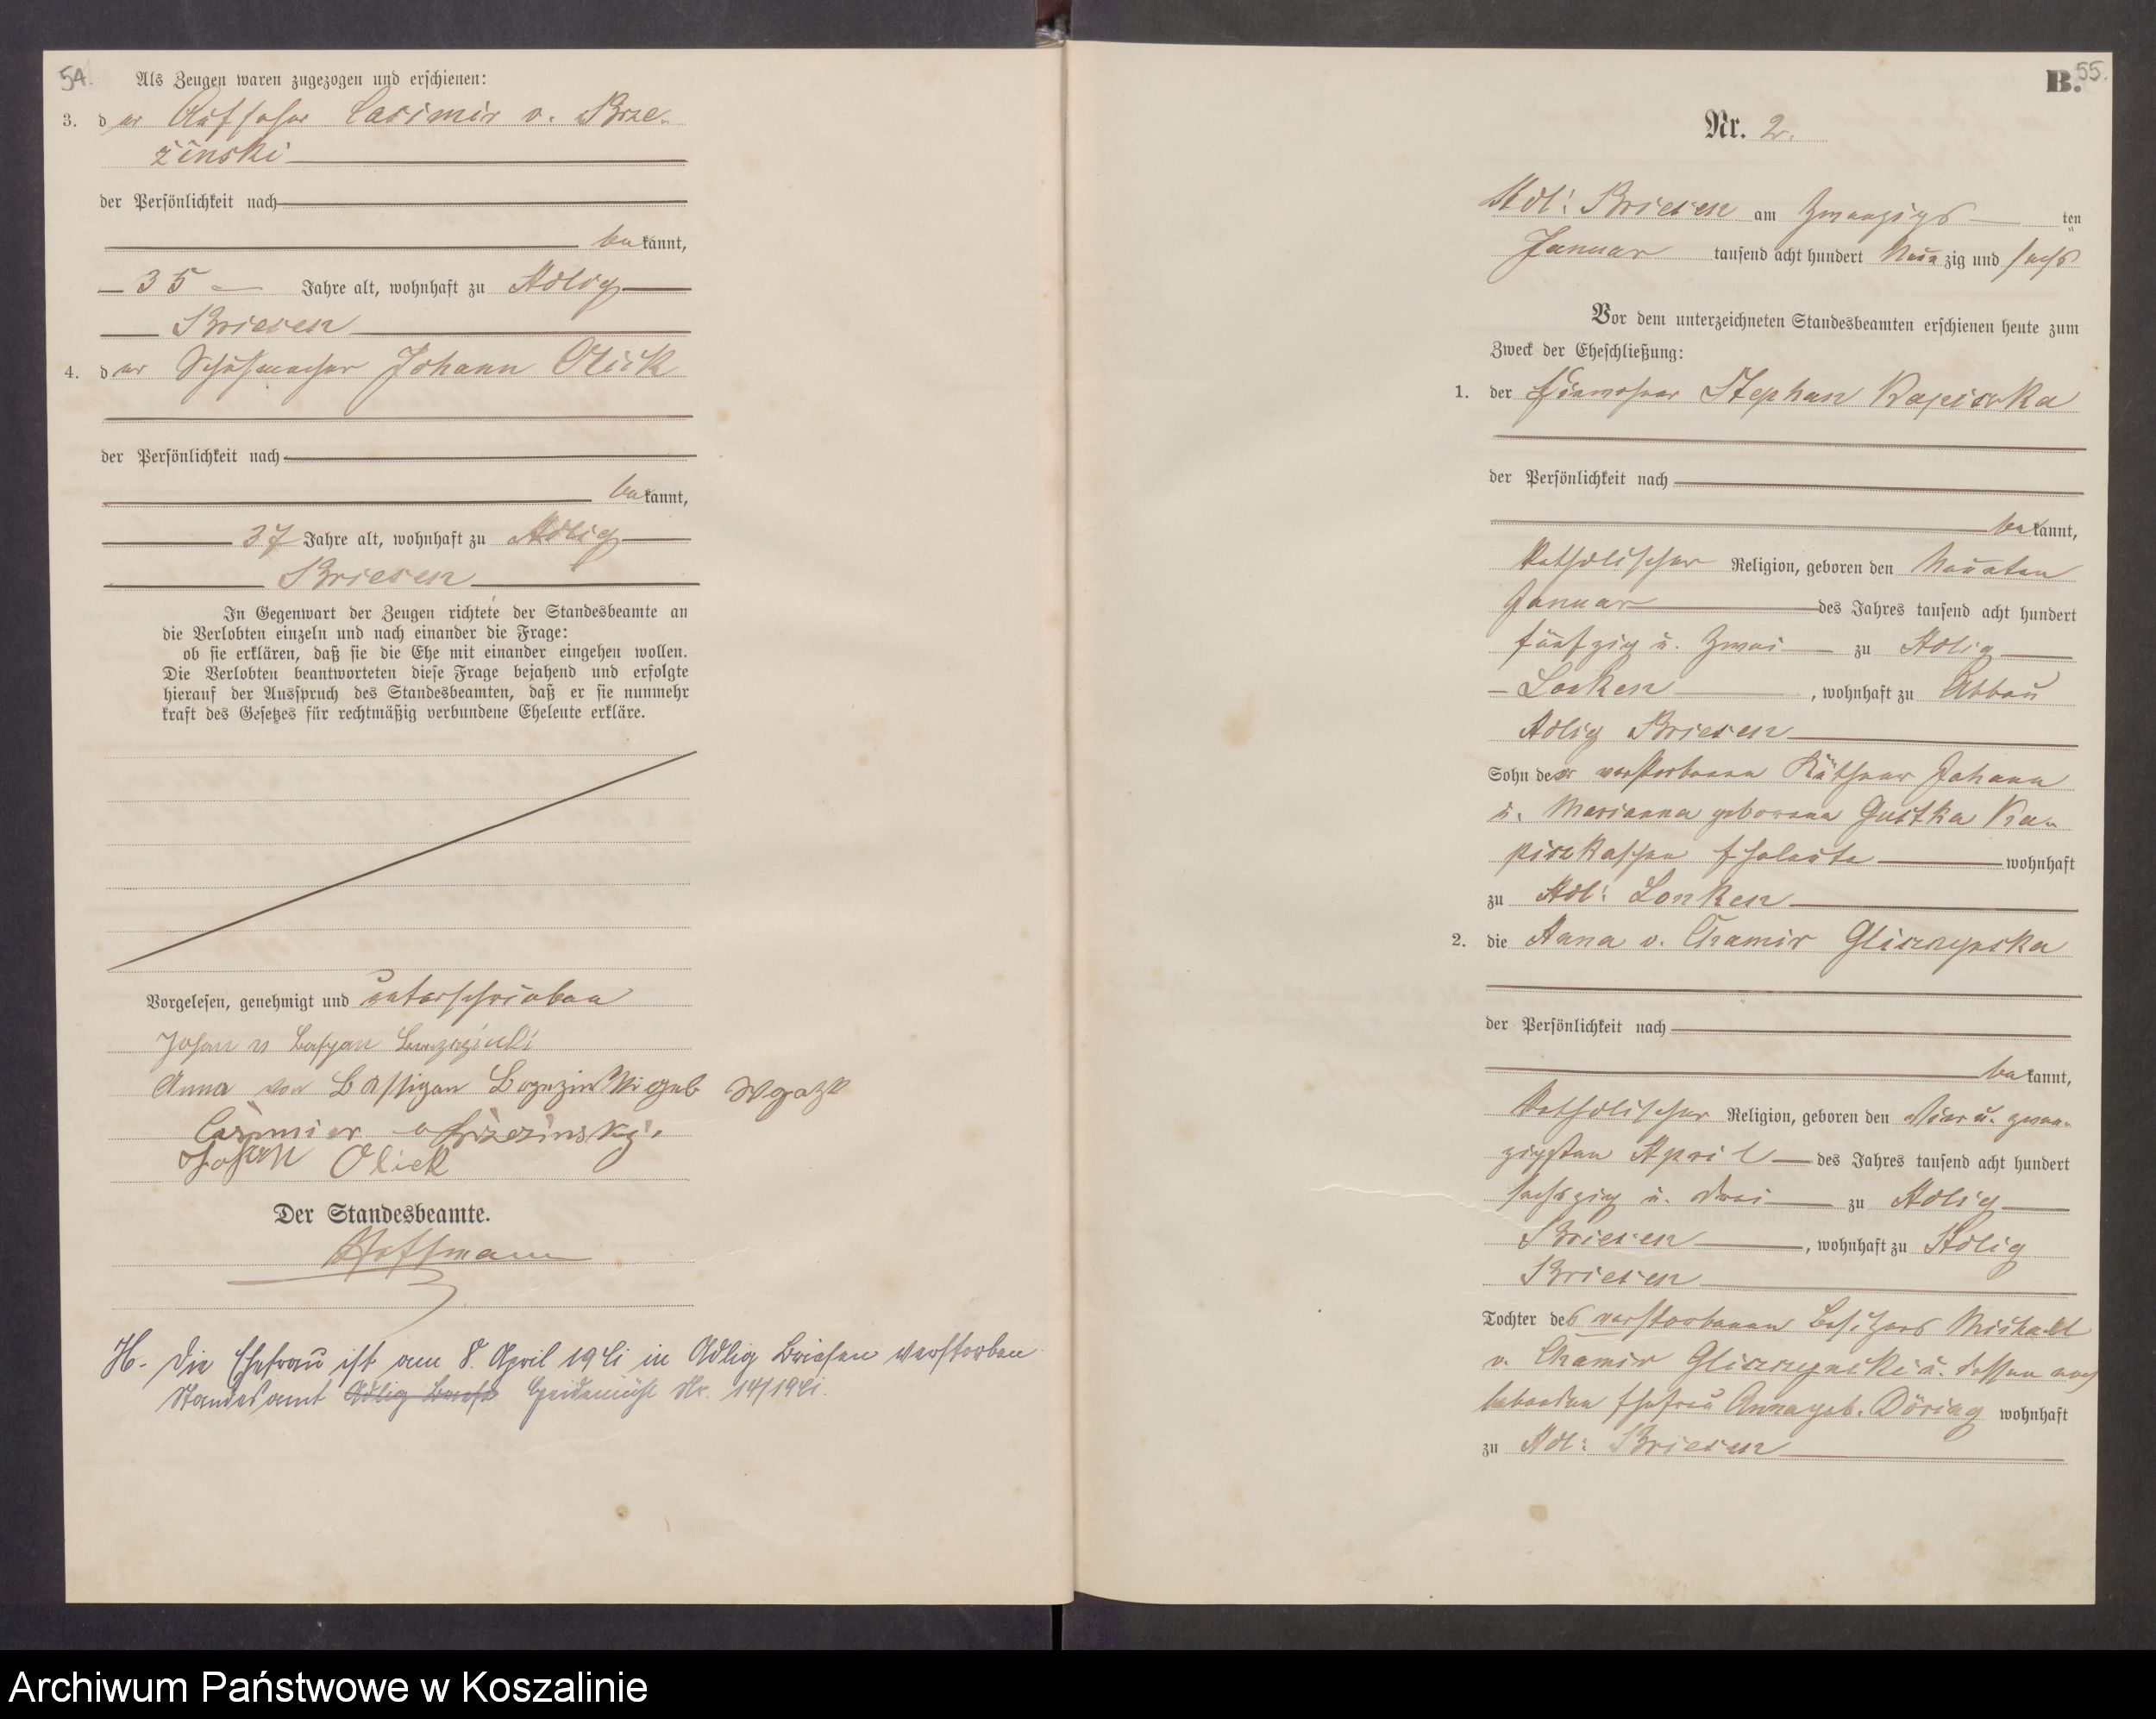 54.
Als Zeugen waren zugezogen und erschienen:
3. der Aufseher Casimir v. Brze-
zinski
der Persönlichkeit nach
bekannt,
35 Jahre alt, wohnhaft zu Adlig
Briesen
4. der Schuhmacher Johann Olick
der Persönlichkeit nach
bekannt,
37 Jahre alt, wohnhaft zu Adlig
Briesen
In Gegenwart der Zeugen richtete der Standesbeamte an
die Verlobten einzeln und nach einander die Frage:
ob sie erklären, daß sie die Ehe mit einander eingehen wollen.
Die Verlobten beantworteten diese Frage bejahend und erfolgte
hierauf der Ausspruch des Standesbeamten, daß er sie nunmehr
kraft des Gesetzes für rechtmäßig verbundene Eheleute erkläre.
Vorgelesen, genehmigt und unterschrieben
Johan v
Anna von geb
Casimier v Brzezinsky
Johan Olick
Der Standesbeamte.
Hoffmann
H. Die Ehefrau ist am 8. April 1941 in Adlig Briesen verstorben
Standesamt Adlig Nr. 14/1941.
B. 55.
Nr. 2.
Adl: Briesen am zwanzigs ten
Januar tausend acht hundert neunzig und sechs
Vor dem unterzeichneten Standesbeamten erschienen heute zum
Zweck der Eheschließung:
1. der Einwohner Stephan Kapiszka
der Persönlichkeit nach
bekannt,
katholischer Religion, geboren den neunten
Januar des Jahres tausend acht hundert
fünfzig u. zwei zu Adlig
Lonken, wohnhaft zu Abbau
Adlig Briesen
Sohn der verstorbenen Käthner Johann
u. Marianna geborene Gustka Ka-
piszkaschen Eheleute wohnhaft
zu Adl: Lonken
2. die Anna v. Chamir Gliszczynska
der Persönlichkeit nach
bekannt,
katholischer Religion, geboren den vier u. zwan-
zigsten April des Jahres tausend acht hundert
sechszig u. drei zu Adlig
Briesen, wohnhaft zu Adlig
Briesen
Tochter des verstorbenen Besitzers Michael
v. Chamir Gliszczynski u. dessen noch
lebenden Ehefrau Anna geb. Döring wohnhaft
zu Adl: Briesen
Archiwum Państwowe w Koszalinie